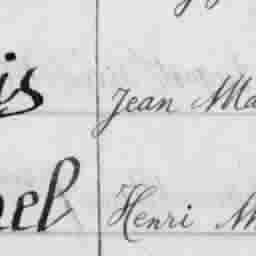 is Jean Ma
el Henri M